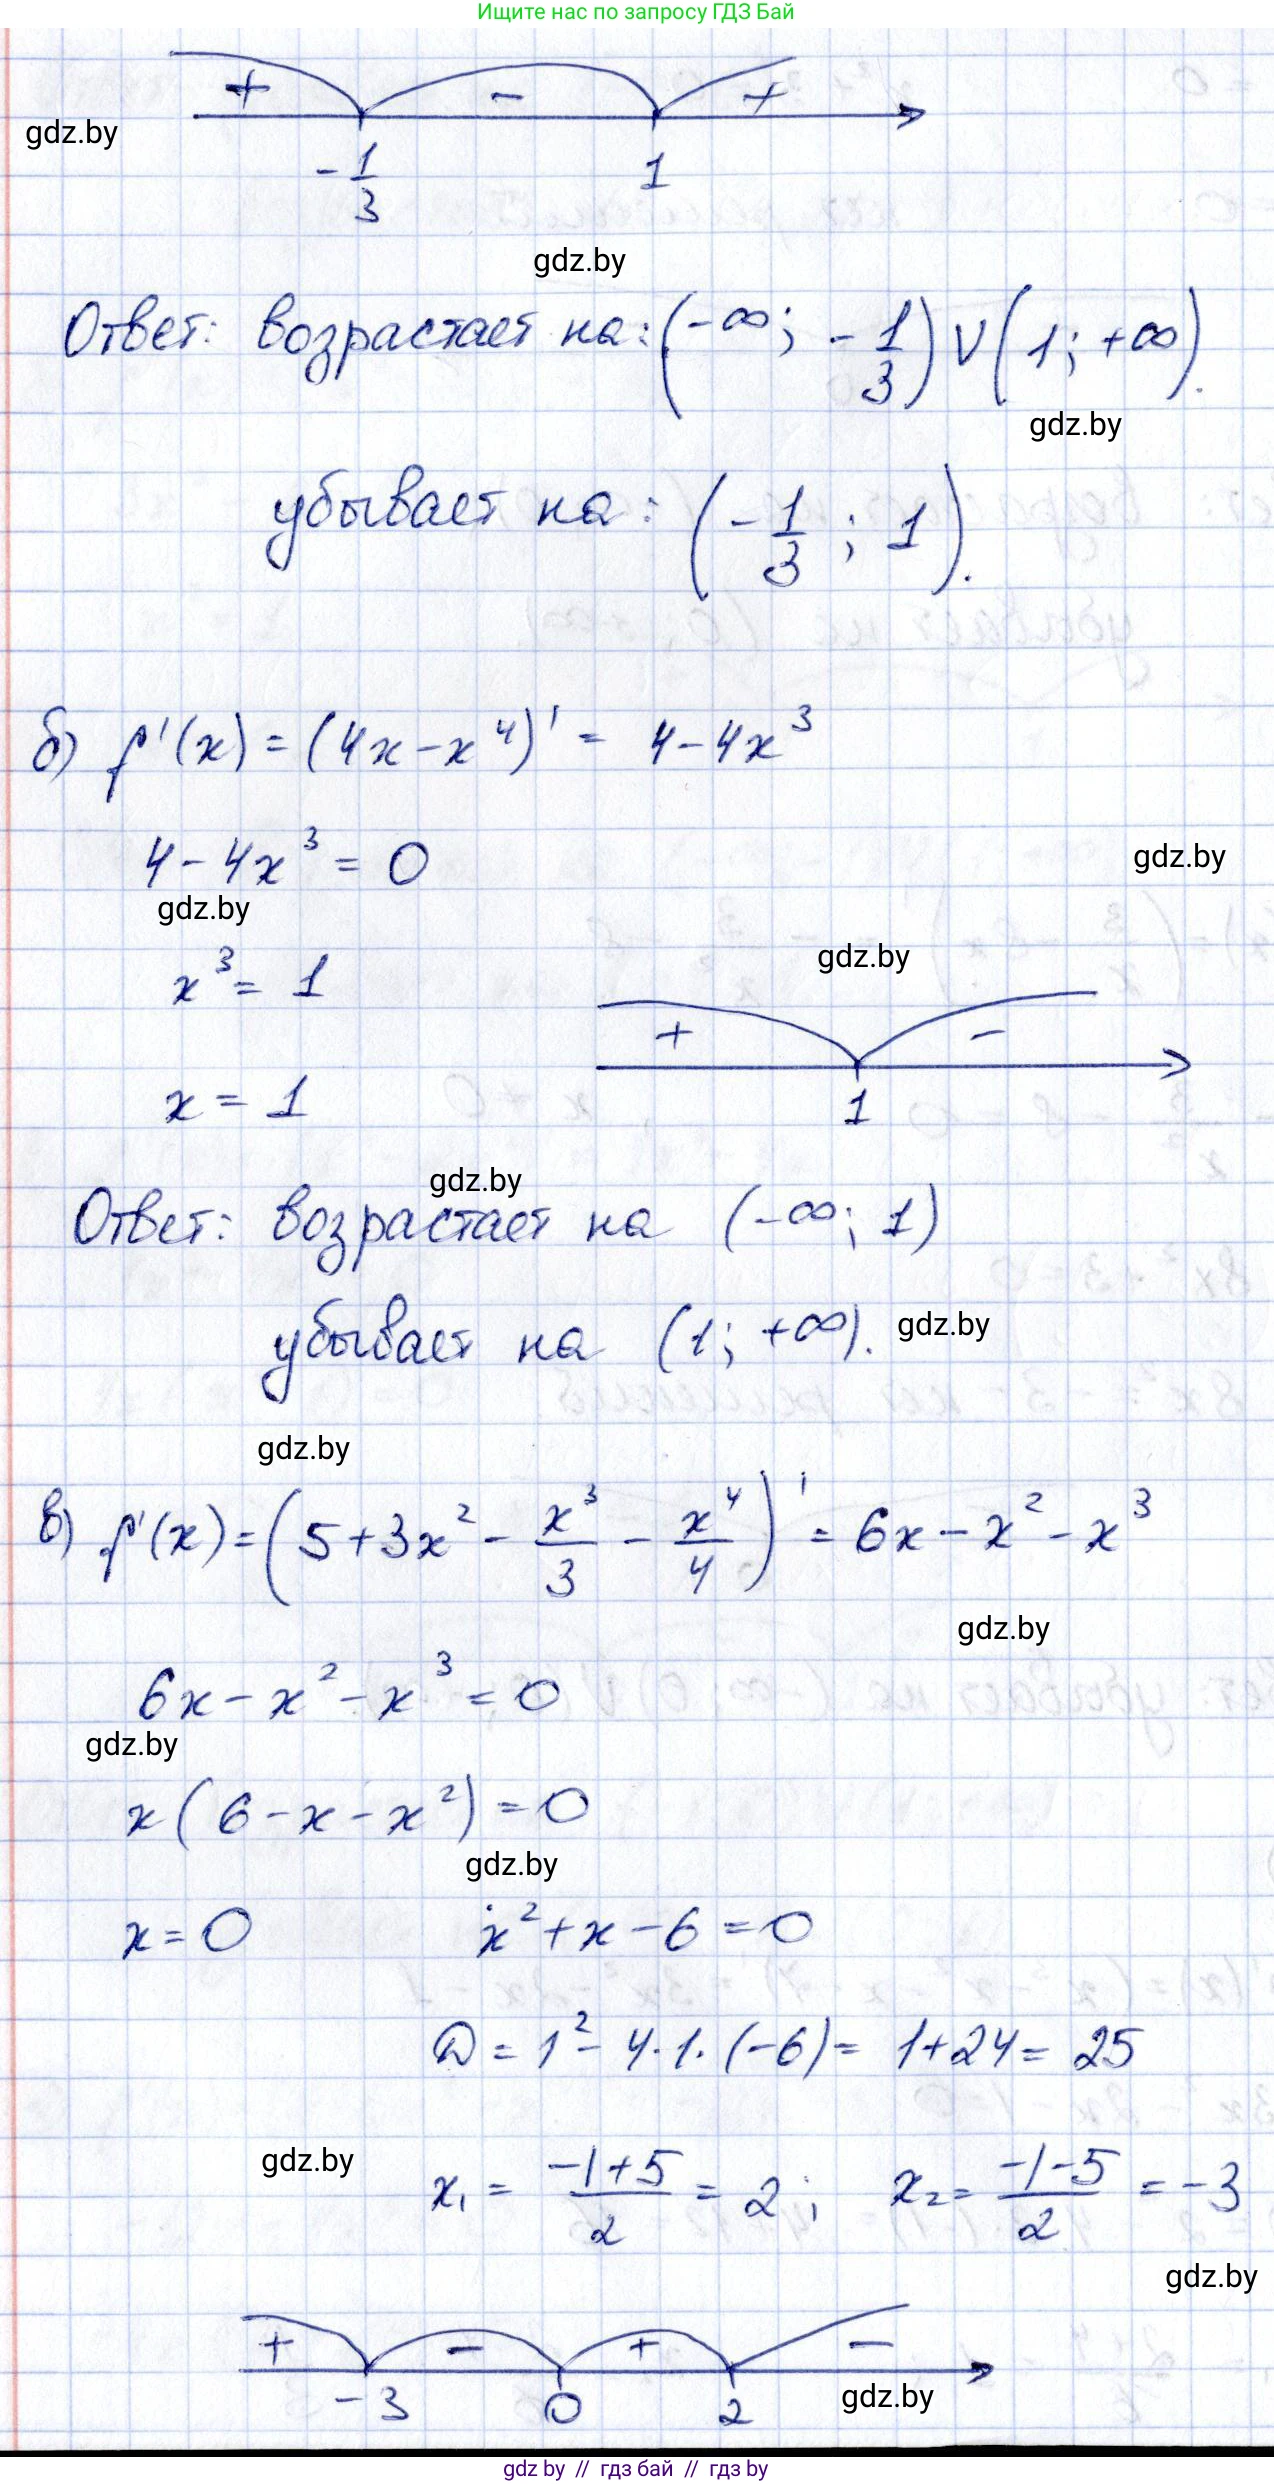 Ищите нас по запросу ГДЗ Бай
+ - +
gdz.by
-1/3 1
gdz.by
Ответ: возрастает на: (-∞; -1/3) ∨ (1; +∞).
gdz.by
убывает на: (-1/3; 1).
б) f'(x) = (4x - x⁴)' = 4 - 4x³
4 - 4x³ = 0
gdz.by
gdz.by
gdz.by
x³ = 1
+ -
x = 1
1
gdz.by
Ответ: возрастает на (-∞; 1)
убывает на (1; +∞).
gdz.by
gdz.by
в) f'(x) = (5 + 3x² - x³/3 - x⁴/4)' = 6x - x² - x³
gdz.by
6x - x² - x³ = 0
gdz.by
x(6 - x - x²) = 0
gdz.by
x = 0 x² + x - 6 = 0
D = 1² - 4·1·(-6) = 1 + 24 = 25
gdz.by
x₁ = (-1+5)/2 = 2; x₂ = (-1-5)/2 = -3
gdz.by
+ - + -
-3 0 2
gdz.by
gdz by // гдз бай // гдз by